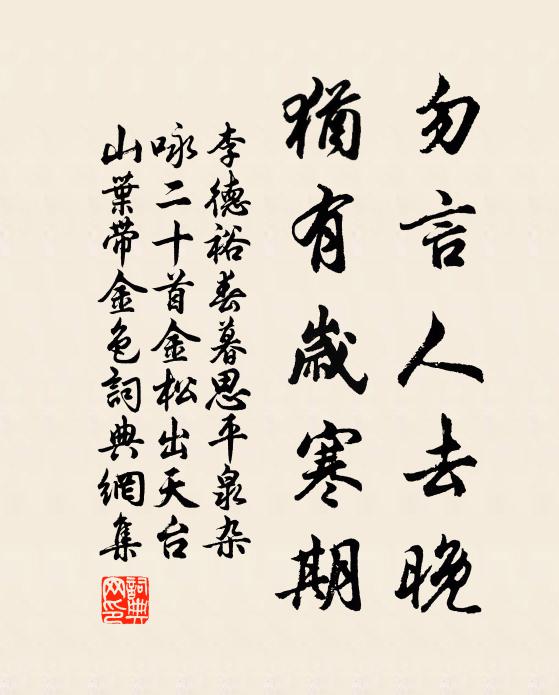 勿言人去晚
猶有歲寒期
李德裕春暮思平泉杂
咏二十首金松出天台
山葉带金色詞典網集
詞典网印